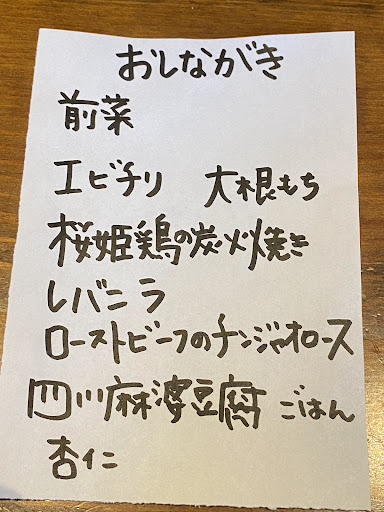 おしながき
前菜
エビチリ 大根もち
桜姫鶏の炭火焼き
レバニラ
ローストビーフのチンジャオロース
四川麻婆豆腐 ごはん
杏仁